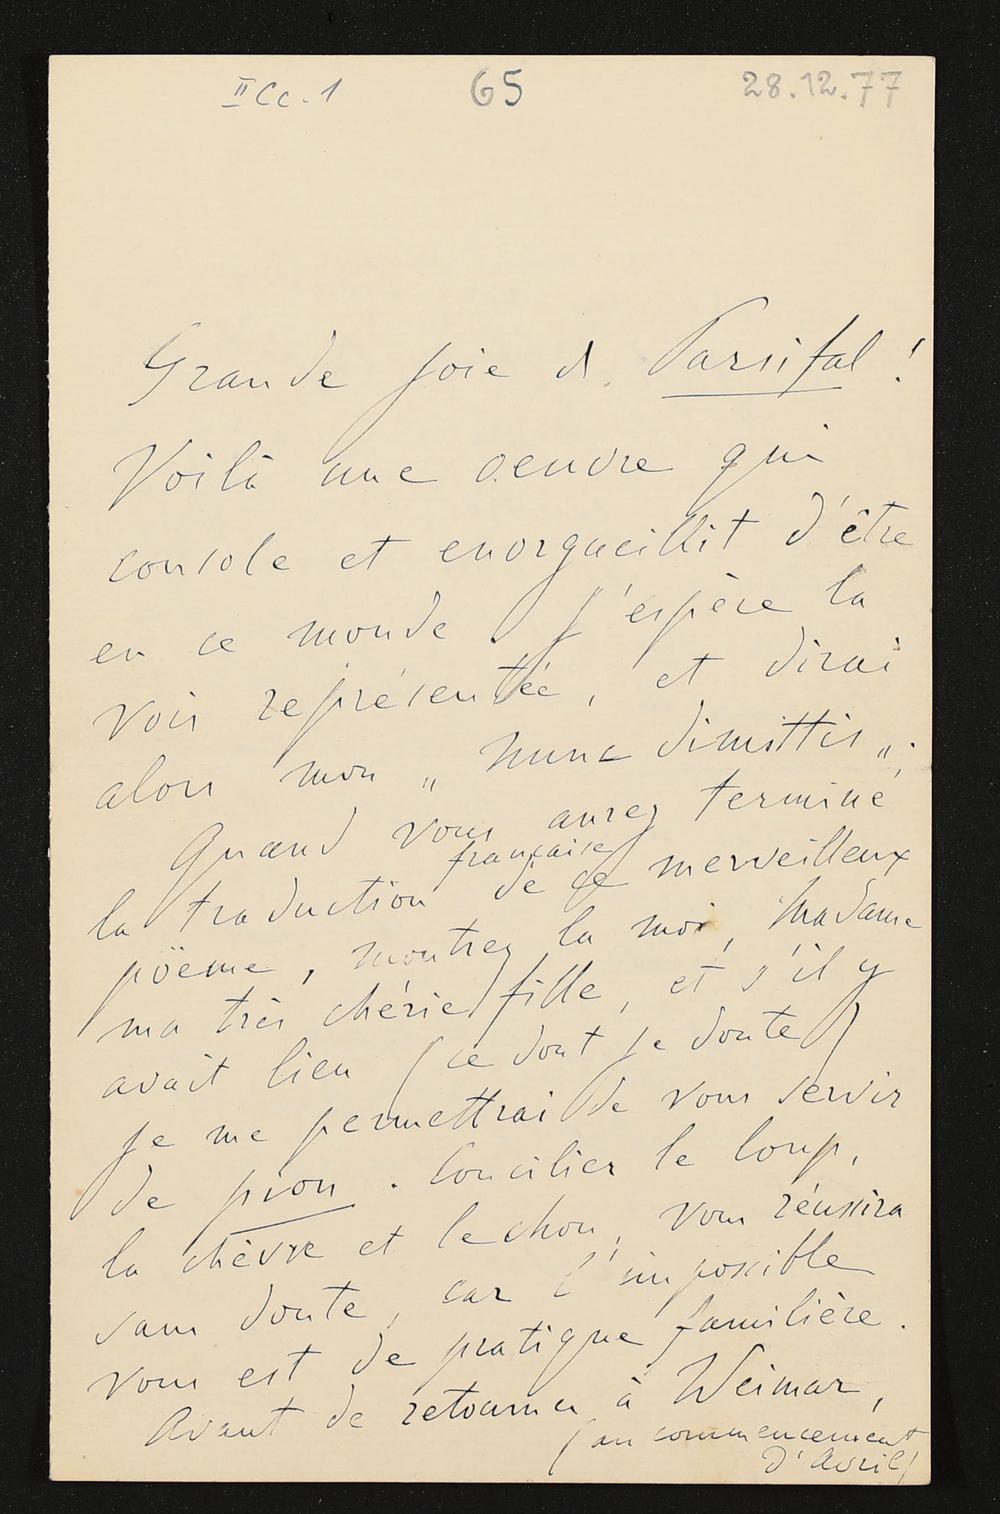 II Cc. 1 65 28.12.77
Grande joie d. Parsifal!
Voilà une oeuvre qui
console et enorgueillit d'être
en ce monde. J'espère la
voir représentée, et dirai
alors mon „ nunc dimittis „.
Quand vous aurez terminé
française
la traduction de ce merveilleux
pöeme, montrez la moi, Madame
ma très chérie fille, et s'il y
avait lieu (ce dont je doute)
je me permettrai de vous servir
de pion. Concilier le loup,
la chèvre et le chou, vous réussira
sans doute, car l'impossible
vous est de pratique familière.
Avant de retourner à Weimar,
(au commencement
d'Avril)